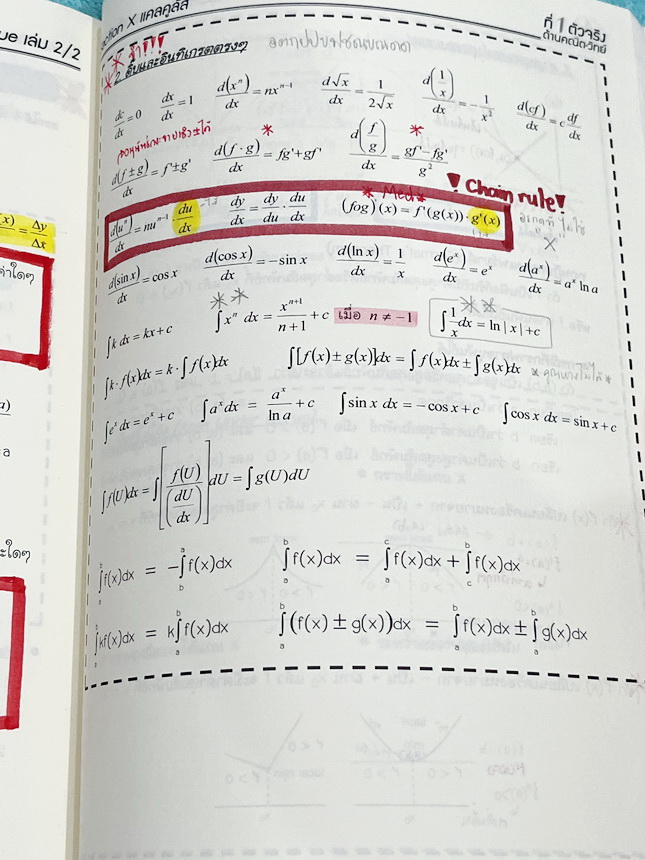 ction X แคลคูลัส
ที่ 1 ตัวจริง
ด้านคณิต-วิทย์
ue เล่ม 2/2
จำ!!!
2. ดิ๊บและอินทิเกรตตรงๆ
dc/dx = 0 dx/dx = 1 d(xⁿ)/dx = nxⁿ⁻¹ d√x/dx = 1/(2√x) d(1/x)/dx = −1/x² d(cf)/dx = c df/dx
d(f ± g)/dx = f' ± g' d(f · g)/dx = fg' + gf' * d(f/g)/dx = (gf' − fg')/g² *
* Med * ! Chain rule !
d(uⁿ)/dx = nuⁿ⁻¹ · du/dx dy/dx = dy/du · du/dx (fog)'(x) = f'(g(x)) · g'(x)
d(sin x)/dx = cos x d(cos x)/dx = −sin x d(ln x)/dx = 1/x d(eˣ)/dx = eˣ d(aˣ)/dx = aˣ ln a
∫k dx = kx + c ∫xⁿ dx = xⁿ⁺¹/(n+1) + c เมื่อ n ≠ −1 ∫(1/x)dx = ln|x| + c
∫k · f(x)dx = k · ∫f(x)dx ∫[f(x) ± g(x)]dx = ∫f(x)dx ± ∫g(x)dx
∫eˣ dx = eˣ + c ∫aˣdx = aˣ/ln a + c ∫sin x dx = −cos x + c ∫cos x dx = sin x + c
∫f(U)dx = ∫[f(U)/(dU/dx)]dU = ∫g(U)dU
∫ₐᵇ f(x)dx = −∫ᵇₐ f(x)dx ∫ₐᵇ f(x)dx = ∫ₐᶜ f(x)dx + ∫ᶜᵇ f(x)dx
∫ₐᵇ kf(x)dx = k∫ₐᵇ f(x)dx ∫ₐᵇ (f(x) ± g(x))dx = ∫ₐᵇ f(x)dx ± ∫ₐᵇ g(x)dx
(x)/ = Δy/Δx
ค่าใดๆ
a)
a
ะใดๆ